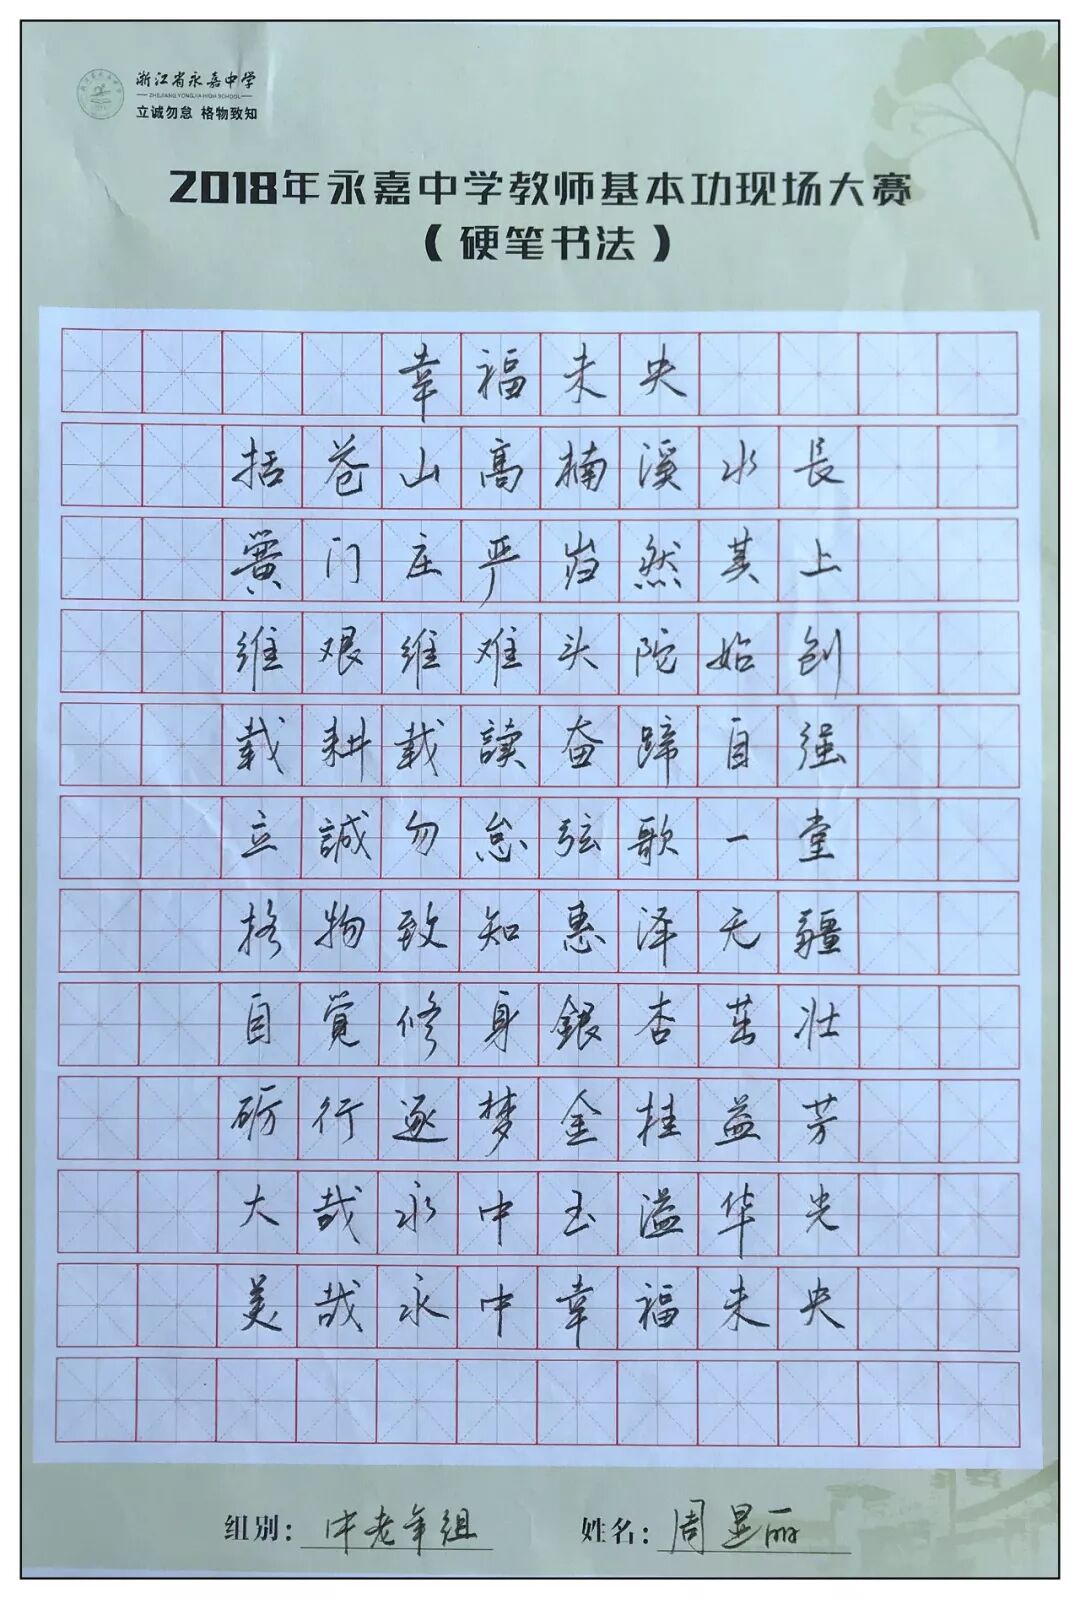 浙江省永嘉中学
ZHEJIANG YONGJIA HIGH SCHOOL
立诚勿怠 格物致知
2018年永嘉中学教师基本功现场大赛
（硬笔书法）
幸福未央
括苍山高楠溪水長
黉门庄严岿然其上
维艰维难头陀始创
载耕载読奋蹄自强
立誠勿怠弦歌一堂
格物致知惠泽无疆
自覚修身銀杏茁壮
砺行逐梦金桂益芳
大哉永中玉溢华光
美哉永中幸福未央
组别：中老年组
姓名：周显丽